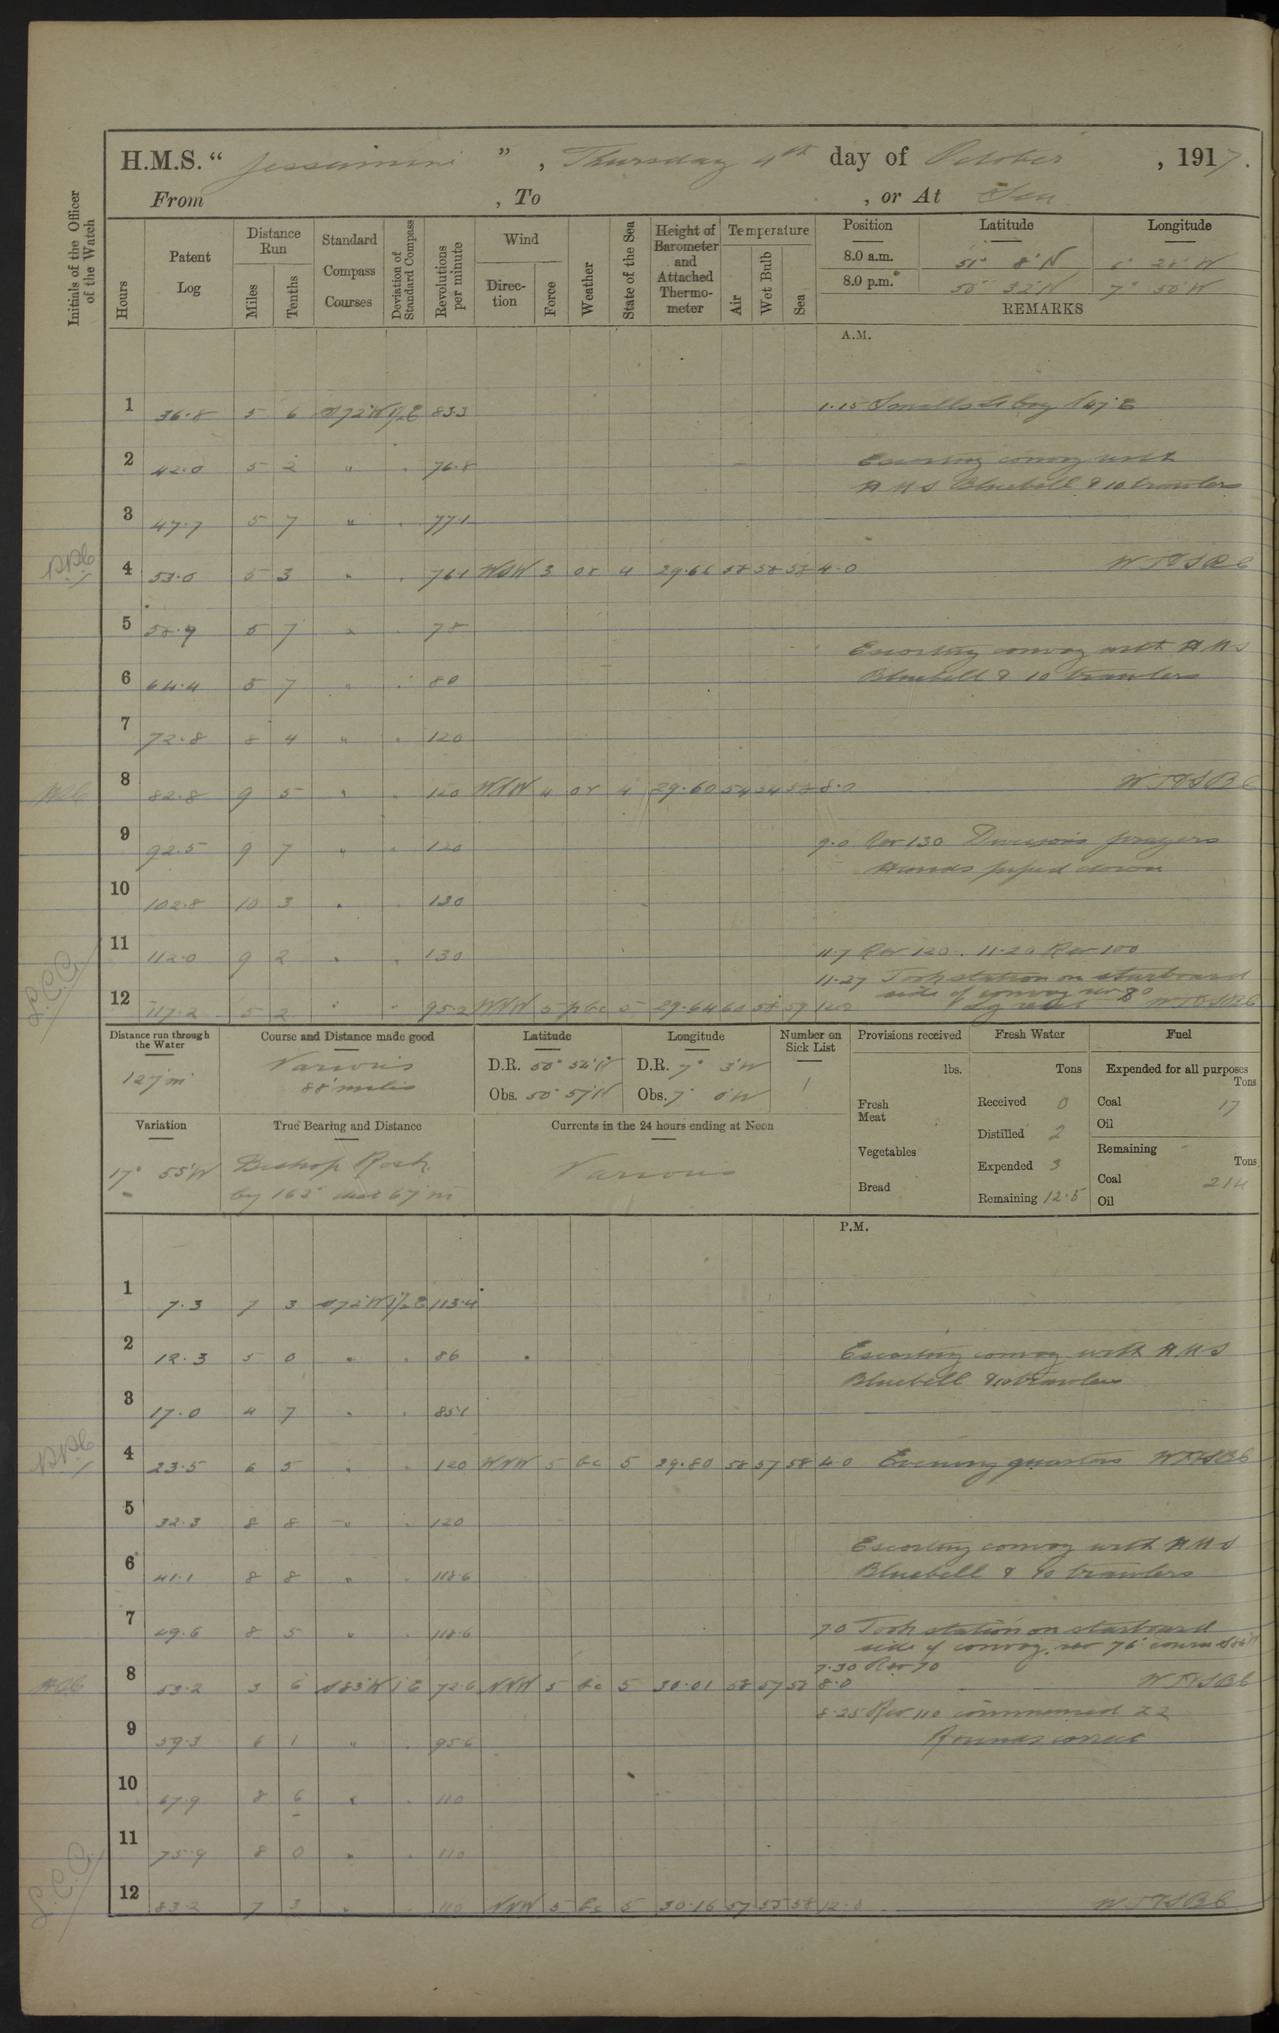 H.M.S. " Jessamine ", Thursday 4th day of October, 1917.
From , To , or At Sea
Initials of the Officer of the Watch
Hours
Patent Log
Distance Run
Miles
Tenths
Standard Compass Courses
Deviation of Standard Compass
Revolutions per minute
Wind
Direction
Force
Weather
State of the Sea
Height of Barometer and Attached Thermometer
Temperature
Air
Wet Bulb
Sea
Position Latitude Longitude
8.0 a.m. 51° 8' N 6° 28' W
8.0 p.m. 50° 32' N 7° 50' W
REMARKS
A.M.
1 36.8 5 6 83.3 1.15
2 42.0 5 2 " 76.8 Escorting convoy with
HMS Bluebell & 10 trawlers
3 47.7 5 7 " 77.1
4 53.0 5 3 " 76.1 WSW 3 or 4 29.66 58 58 58 4.0
5 58.9 5 7 " 78
Escorting convoy with HMS
6 64.4 5 7 " 80 Bluebell & 10 trawlers
7 72.8 8 4 " 120
8 82.8 9 5 " 120 4 or 4 29.60 54 54 58 8.0
9 92.5 9 7 " 120 9.0 Rev 130 Divisions prayers
Hands piped down
10 102.8 10 3 " 130
11 112.0 9 2 " 130 11.7 Rev 120. 11.20 Rev 100
11.27 Took station on starboard
side of convoy rev 80
12 117.2 5 2 " 95.2 WNW 5 pbc 5 29.64 60 58 59 12.0
Distance run through the Water
127 m
Course and Distance made good
Various
88 miles
Latitude
D.R. 50° 52' N
Obs. 50° 57' N
Longitude
D.R. 7° 3' W
Obs. 7° 0' W
Number on Sick List
1
Provisions received
lbs.
Fresh Meat
Vegetables
Bread
Fresh Water
Tons
Received 0
Distilled 2
Expended 3
Remaining 12.5
Fuel
Expended for all purposes
Tons
Coal 17
Oil
Remaining
Tons
Coal 214
Oil
Variation
17° 55' W
True Bearing and Distance
Bishop Rock
by 162° dist 67 m
Currents in the 24 hours ending at Noon
Various
P.M.
1 7.3 7 3 113.4
2 12.3 5 0 " 86 Escorting convoy with HMS
Bluebell & 10 trawlers
3 17.0 4 7 " 85.1
4 23.5 6 5 " 120 WNW 5 bc 5 29.80 58 57 58 4.0 Evening quarters
5 32.3 8 8 " 120
Escorting convoy with HMS
6 41.1 8 8 " 118.6 Bluebell & 10 trawlers
7 49.6 8 5 " 118.6 7.0 Took station on starboard
side of convoy. rev 76 course
7.30 Rev 70
8 53.2 3 6 72.6 NNW 5 bc 5 30.01 58 57 58 8.0
8.25 Rev 110 commenced ZZ
9 59.3 6 1 " 95.6 Rounds correct
10 67.9 8 6 " 110
11 75.9 8 0 " 110
12 83.2 7 3 " 110 NNW 5 bc 5 30.16 57 55 58 12.0